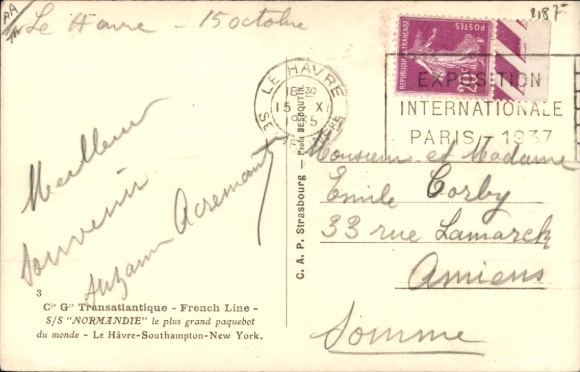 AA
Le Havre - 15 octobre
2187F
REPUBLIQUE FRANÇAISE
POSTES
20c
LE HAVRE
18 30
15 XI
EXPOSITION
INTERNATIONALE
PARIS - 1937
Meilleur
Souvenir
Suzanne Acremant
Monsieur et Madame
Emile Corby
33 rue Lamarck
Amiens
Somme
C. A. P. Strasbourg — Photo DESBOUTIN.
3
Cie Gle Transatlantique - French Line -
S/S "NORMANDIE" le plus grand paquebot
du monde - Le Hâvre-Southampton-New York.